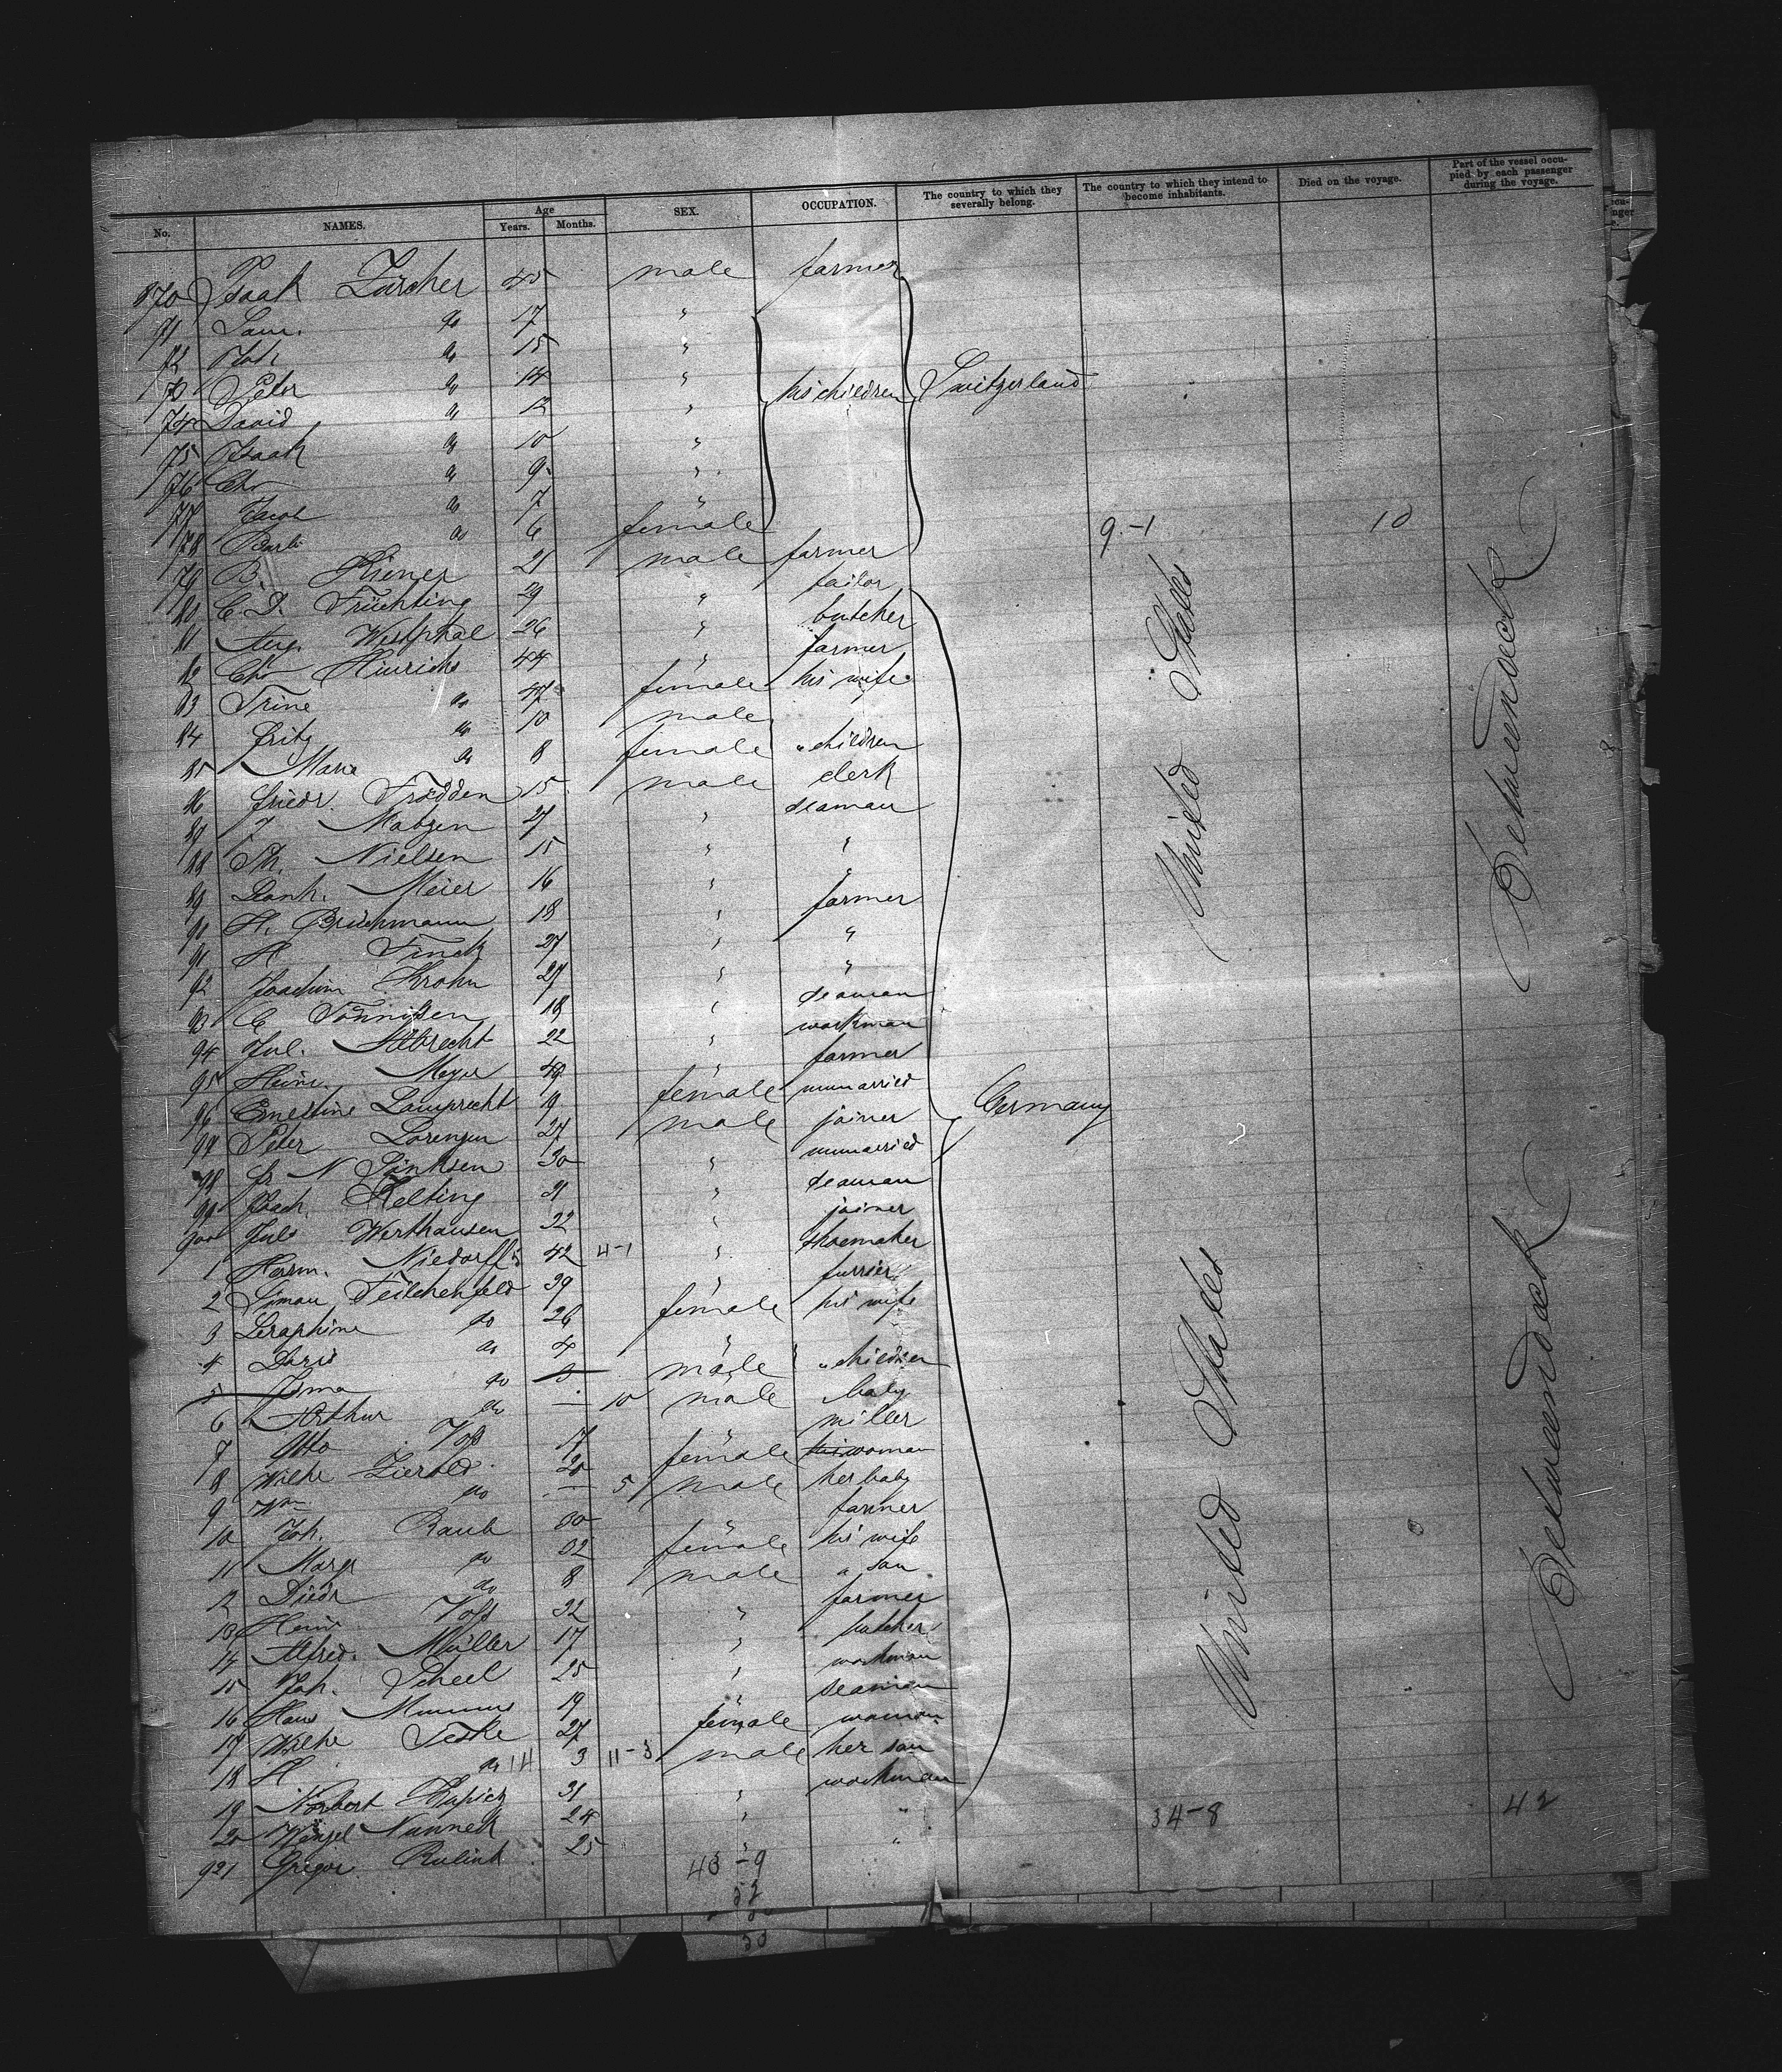 No. NAMES. Age Years. Months. SEX. OCCUPATION. The country to which they severally belong. The country to which they intend to become inhabitants. Died on the voyage. Part of the vessel occupied by each passenger during the voyage.
870 Isaak Zürcher 45 male farmer
71 Sam. do 17 "
72 Joh. do 15 "
73 Peter do 14 " his children Switzerland
74 David do 12 "
75 Isaak do 10 "
76 Chr do 9 "
77 Jacob do 7 "
78 Barb. do 6 female 9-1 10
79 B. Kiener 21 male farmer
80 C. D. Früchting 29 " tailor
81 Aug. Westphal 26 " butcher
82 Chr Hinrichs 44 " farmer
83 Trine do 47 female his wife
84 Fritz do 10 male
85 Marie do 8 female " children
86 Friedr. Tradden 15 male clerk
87 J Matzen 27 " seaman
88 Th. Nielsen 15 " "
89 Meier 16 " "
90 H. Brüchmann 18 " farmer
91 H Finck 27 " "
92 Joachim Krohn 27 " "
93 C Tönnissen 18 " seaman
94 Jul. Albrecht 22 " workman
95 Heinr. Meyer 49 " farmer
96 Ernestine Lamprecht 19 female unmarried
97 Peter Lorenzen 27 male joiner Germany
98 N Sönksen 30 " unmarried
99 Joach. Kelting 31 " seaman
900 Juls Werthausen 32 " joiner
1 Herm. Niedorff 42 4-1 " shoemaker
2 Simon Teilchenfeld 39 " furrier
3 Seraphine do 26 female his wife
4 Doris do 4 "
5 Irma do male " children
6 Arthur do — 10 male baby
7 Otto Voss 17 " miller
8 Wilhe Zierold 20 female woman
9 Wm do — 5 male her baby
10 Joh. Raub 30 " farmer
11 Margr do 32 female his wife
12 Diedr do 8 male a son
13 Heinr Voss 32 " farmer
14 Alfred. Müller 17 " butcher
15 Joh. Scheel 25 " workman
16 Hans Mummus 19 " seaman
17 Wilhe Teske 27 female woman
18 H do 14 3 11-3 male her son
19 Norbert 31 " workman
20 Wenzel Nunnek 24 " " 34-8 42
921 Gregor Rulink 25 " "
43-9
52
United States
Between deck
United States
Between deck